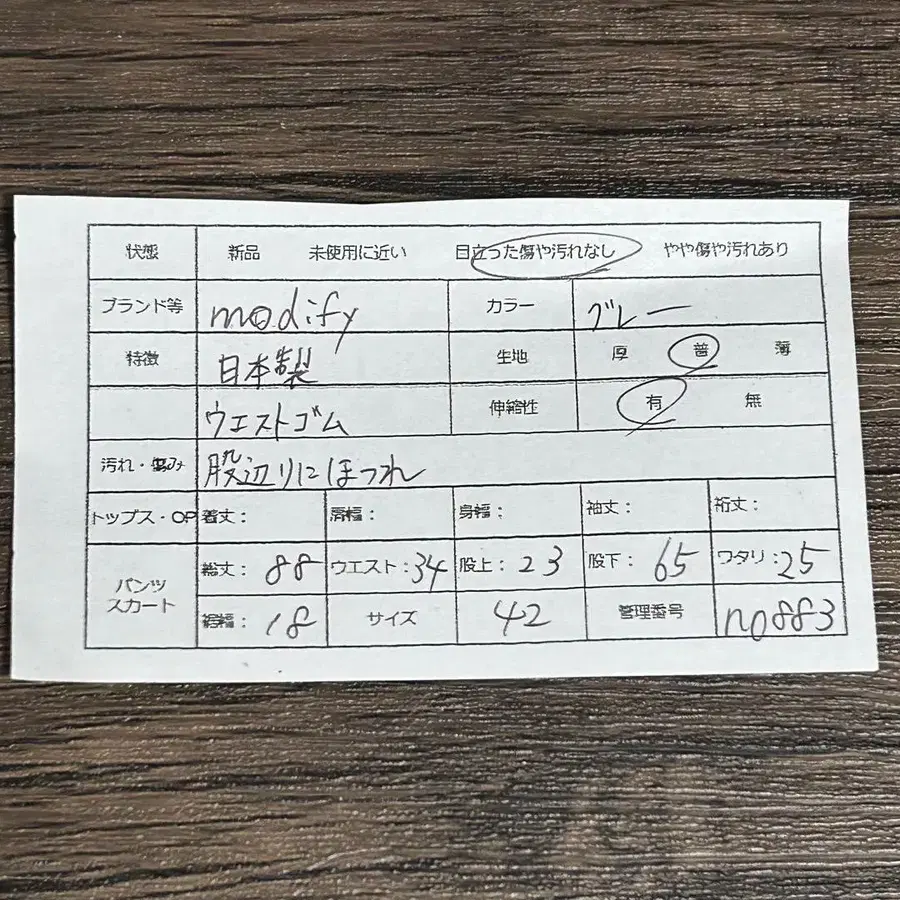 状態 新品 未使用に近い 目立った傷や汚れなし やや傷や汚れあり
ブランド等 modify カラー グレー
特徴 日本製 生地 厚 普 薄
ウエストゴム 伸縮性 有 無
汚れ・傷み 股辺りにほつれ
トップス・OP 着丈: 肩幅: 身幅: 袖丈: 裄丈:
パンツ スカート 総丈: 88 ウエスト: 34 股上: 23 股下: 65 ワタリ: 25
裾幅: 18 サイズ 42 管理番号 no883